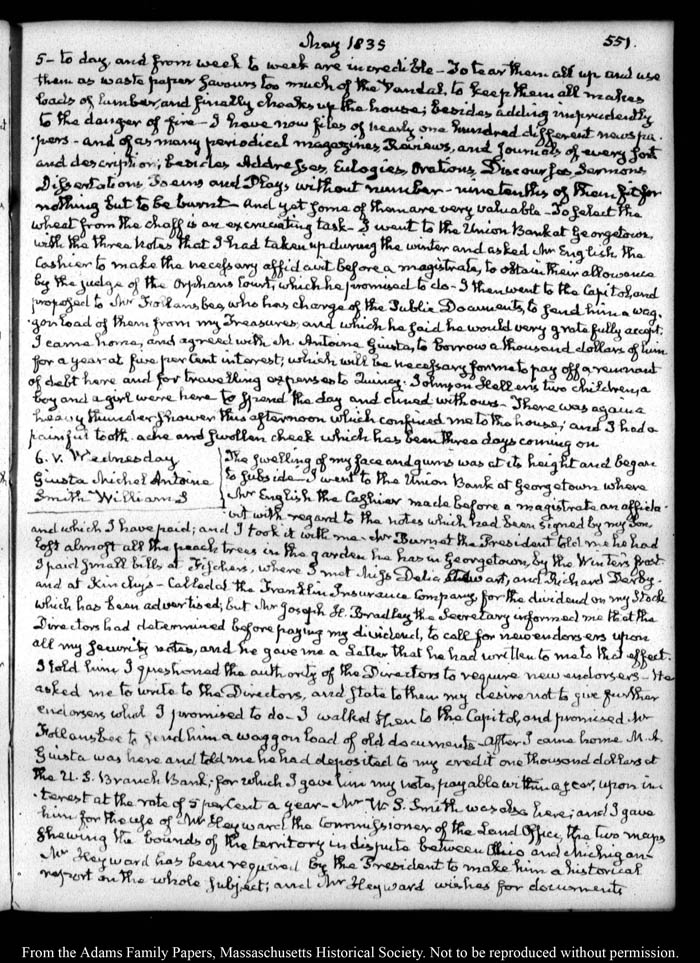 May 1835
551.
5– to day, and from week to week are incredible – To tear them all up and use
them as waste paper favours too much of the Vandal, to keep them all makes
loads of lumber, and finally choaks up the house; besides adding imprudently
to the danger of fire – I have now files of nearly one hundred different newspa-
-pers – and of as many periodical magazines, Reviews, and Journals of every sort
and description; besides Addresses, Eulogies, Orations, Discourses, Sermons
Dissertations Poems and Plays without number – nine tenths of them fit for
nothing but to be burnt – And yet some of them are very valuable – To select the
wheat from the chaff is an excruciating task – I went to the Union Bank at Georgetown,
with the three Notes that I had taken up during the winter and asked Mr English the
Cashier to make the necessary affidavit before a magistrate, to obtain their allowance
by the Judge of the Orphans Court, which he promised to do – I then went to the Capitol, and
proposed to Mr Follansbee, who has charge of the Public Documents, to send him a wag-
-gon load of them from my Treasures, and which he said he would very gratefully accept.
I came home, and agreed with M. Antoine Giusta, to borrow a thousand dollars of him
for a year at five per Cent interest; which will be necessary for me to pay off a remnant
of debt here and for travelling expenses to Quincy. Johnson Hellen's two children, a
boy and a girl were here to spend the day and dined with ours – There was again a
heavy thunder shower this afternoon which confined me to the house; and I had a
painful tooth-ache and swollen cheek which has been three days coming on
6. V. Wednesday
Giusta Michel Antoine
Smith William S
The swelling of my face and gums was at its height and began
to subside – I went to the Union Bank at Georgetown where
Mr English the Cashier made before a magistrate an affida-
-vit with regard to the notes which had been signed by my Son,
and which I have paid; and I took it with me – Mr Burnet the President told me he had
lost almost all the peach trees in the garden he has in Georgetown, by the Winter's frost.
I paid small bills at Fischer's, where I met Miss Delia Stewart, and Richard Derby –
and at Kinchy's – Called at the Franklin Insurance Company, for the dividend on my Stock
which has been advertised; but Mr Joseph H. Bradley the Secretary informed me that the
Directors had determined before paying my dividend, to call for new endorsers upon
all my security notes, and he gave me a Letter that he had written to me to that effect.
I told him I questioned the authority of the Directors to require new endorsers – He
asked me to write to the Directors, and state to them my desire not to give further
endorsers what I promised to do – I walked then to the Capitol, and promised Mr
Follansbee to send him a waggon load of old documents – After I came home M. A.
Giusta was here and told me he had deposited to my credit one thousand dollars at
the U. S. Branch Bank; for which I gave him my note, payable within a year, upon in-
-terest at the rate of 5 per Cent a year – Mr W. S. Smith was also here; and I gave
him for the use of Mr Heyward the Commissioner of the Land Office, the two maps
shewing the bounds of the territory in dispute between Ohio and Michigan –
Mr Heyward has been required by the President to make him a historical
report on the whole subject; and Mr Heyward wishes for documents
From the Adams Family Papers, Massachusetts Historical Society. Not to be reproduced without permission.